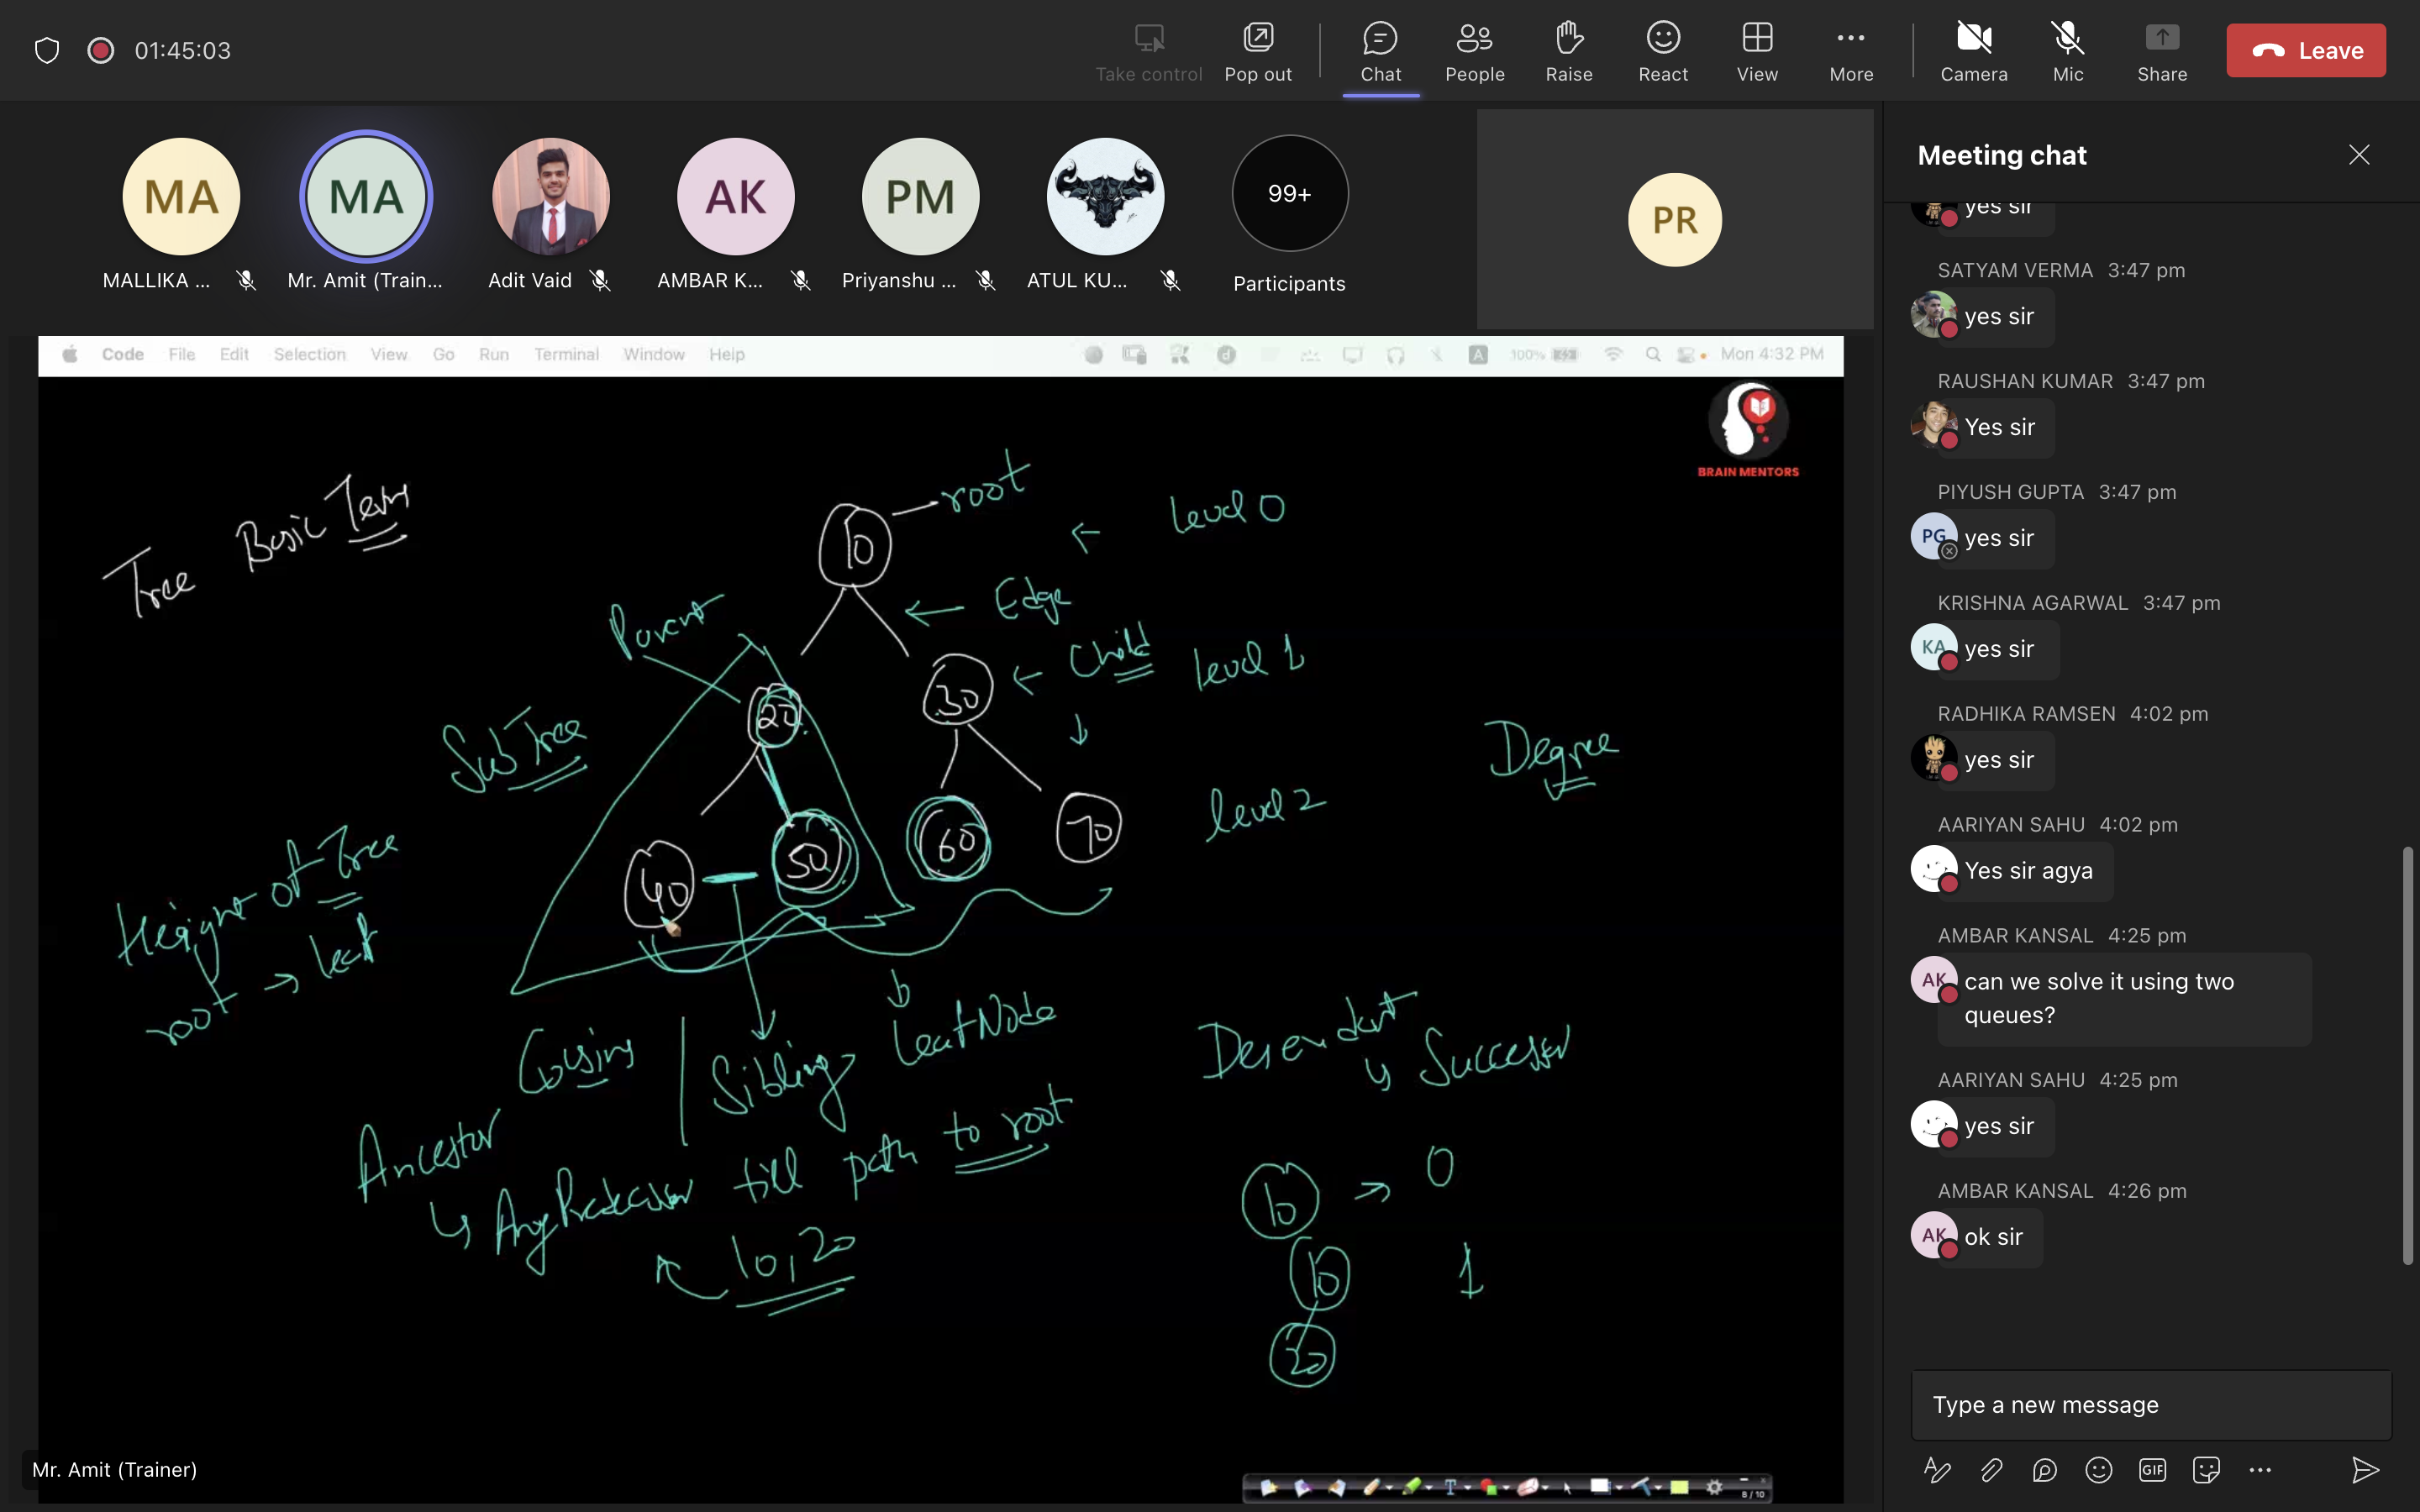 01:45:03
Take control
Pop out
Chat
People
Raise
React
View
More
Camera
Mic
Share
Leave
MA
MALLIKA ...
MA
Mr. Amit (Train...
Adit Vaid
AK
AMBAR K...
PM
Priyanshu ...
ATUL KU...
99+
Participants
PR
Code File Edit Selection View Go Run Terminal Window Help
A 100% Mon 4:32 PM
BRAIN MENTORS
Tree Basic Term
10
root
level 0
Edge
Parent
20
30
Child
level 1
SubTree
Degree
40
50
60
70
level 2
Height of Tree
root → leaf
Cousins | Sibling
Leaf Node
Successor
Ancestor
till path to root
10, 20
10 → 0
10
1
20
8 / 10
Mr. Amit (Trainer)
Meeting chat
yes sir
SATYAM VERMA 3:47 pm
yes sir
RAUSHAN KUMAR 3:47 pm
Yes sir
PIYUSH GUPTA 3:47 pm
PG
yes sir
KRISHNA AGARWAL 3:47 pm
KA
yes sir
RADHIKA RAMSEN 4:02 pm
yes sir
AARIYAN SAHU 4:02 pm
Yes sir agya
AMBAR KANSAL 4:25 pm
AK
can we solve it using two
queues?
AARIYAN SAHU 4:25 pm
yes sir
AMBAR KANSAL 4:26 pm
AK
ok sir
Type a new message
GIF